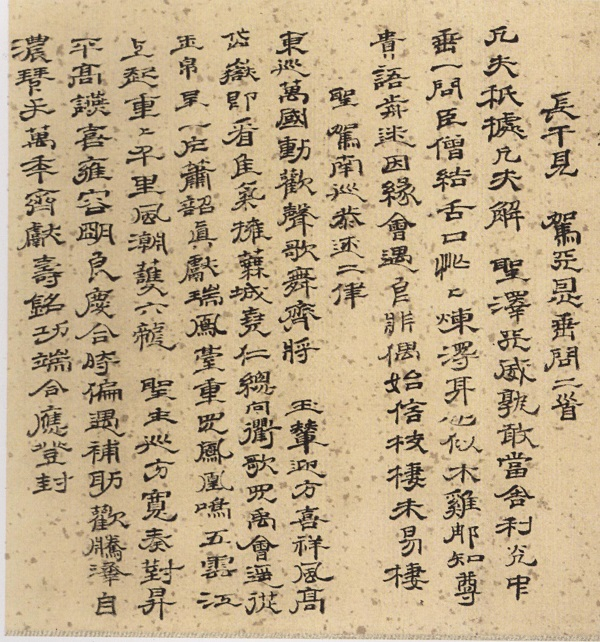 長干見　駕　恩垂問二首
凡夫祇據凡夫解　聖澤天威孰敢當舍利光中
垂一問臣僧結舌口忙忙　澤耳心似木雞那知尊
貴語　迷因緣會遇自非偶始信枝棲未易棲
聖駕南巡恭述二律
東巡萬國動歡聲歌舞齊將　玉輦迎方喜祥風高
岱嶽即看佳氣擁蕪城堯仁總向衢歌見禹會遙從
玉帛呈一片簫韶真獻瑞鳳臺重見鳳凰鳴五雲江
上起重重千里風潮護六龍　聖主巡方寬奏對昇
平高讌喜雍容明良慶合時偏遇補助歡騰澤自
濃　天萬年齊獻壽銘功端合應登封